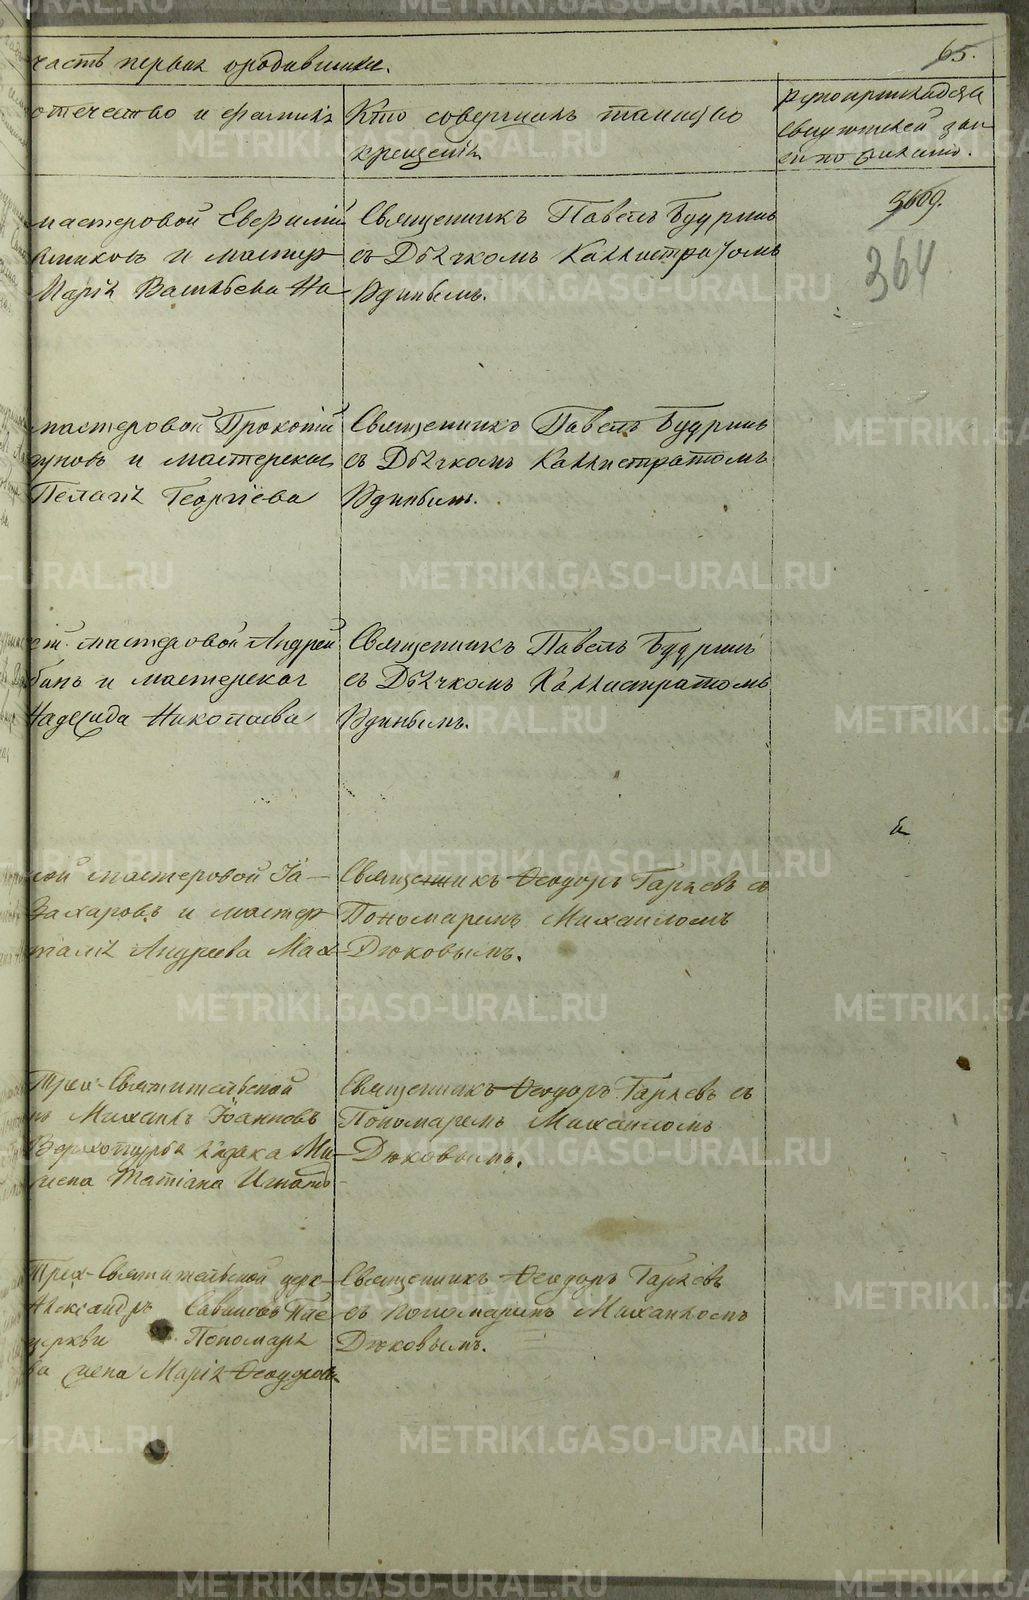 часть первая о родившихся.
65.
отечество и фамилія
Кто совершалъ таинство
крещенія.
Рукоприкладства
свидѣтелей запи
си по желанію.
мастеровой Евфимій
никовъ и мастер
Марія Васильева На
Священникъ Павелъ Будринъ
съ Дьячкомъ Каллистратомъ
Удинымъ.
3669.
364
мастеровой Прокопій
дуновъ и мастерская
Пелагія Георгіева
Священникъ Павелъ Будринъ
съ Дьячкомъ Каллистратомъ
Удинымъ.
мастеровой Андрей
бинъ и мастерская
Надежда Николаева
Священникъ Павелъ Будринъ
съ Дьячкомъ Каллистратомъ
Удинымъ.
ской мастеровой За-
Захаровъ и мастер
талія Андреева Мак-
Священникъ Ѳеодоръ Гаряевъ съ
Пономаремъ Михаиломъ
Дюковымъ.
Трех-Святительской
Михаилъ Іоанновъ
Верхотурья Ми-
жена Татіана Игнать-
Священникъ Ѳеодоръ Гаряевъ съ
Пономаремъ Михаиломъ
Дюковымъ.
Трех-Святительской церк-
Александръ Савиновъ
церкви Пономаря
ва жена Марія Ѳеодорова
Священникъ Ѳеодоръ Гаряевъ
съ Пономаремъ Михаиломъ
Дюковымъ.
METRIKI.GASO-URAL.RU